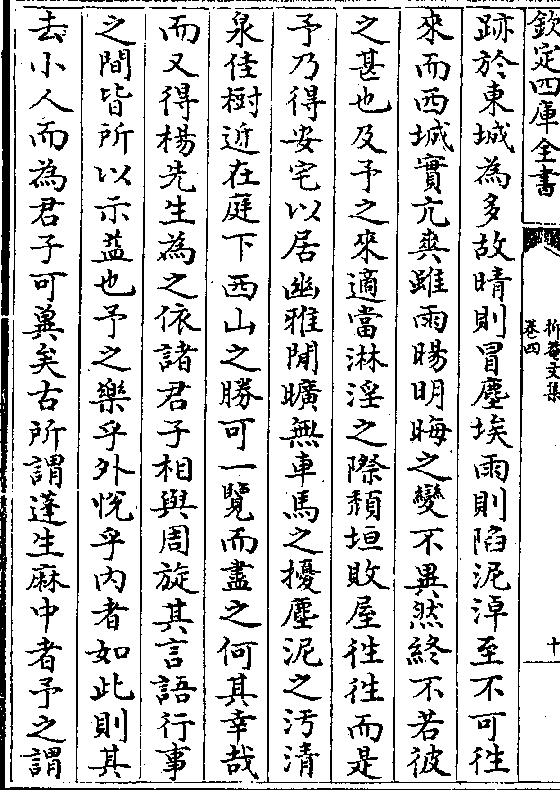 欽定四庫全書
卷四
十
跡於東城為多故晴則冒塵埃雨則陷泥淖至不可徃
來而西城實亢爽雖雨暘明晦之變不異然終不若彼
之甚也及予之來適當淋淫之際頽垣敗屋徃徃而是
予乃得安宅以居幽雅閒曠無車馬之擾塵泥之汚清
泉佳樹近在庭下西山之勝可一覽而盡之何其幸哉
而又得楊先生為之依諸君子相與周旋其言語行事
之間皆所以示益也予之樂乎外悦乎内者如此則其
去小人而為君子可冀矣古所謂蓬生麻中者予之謂